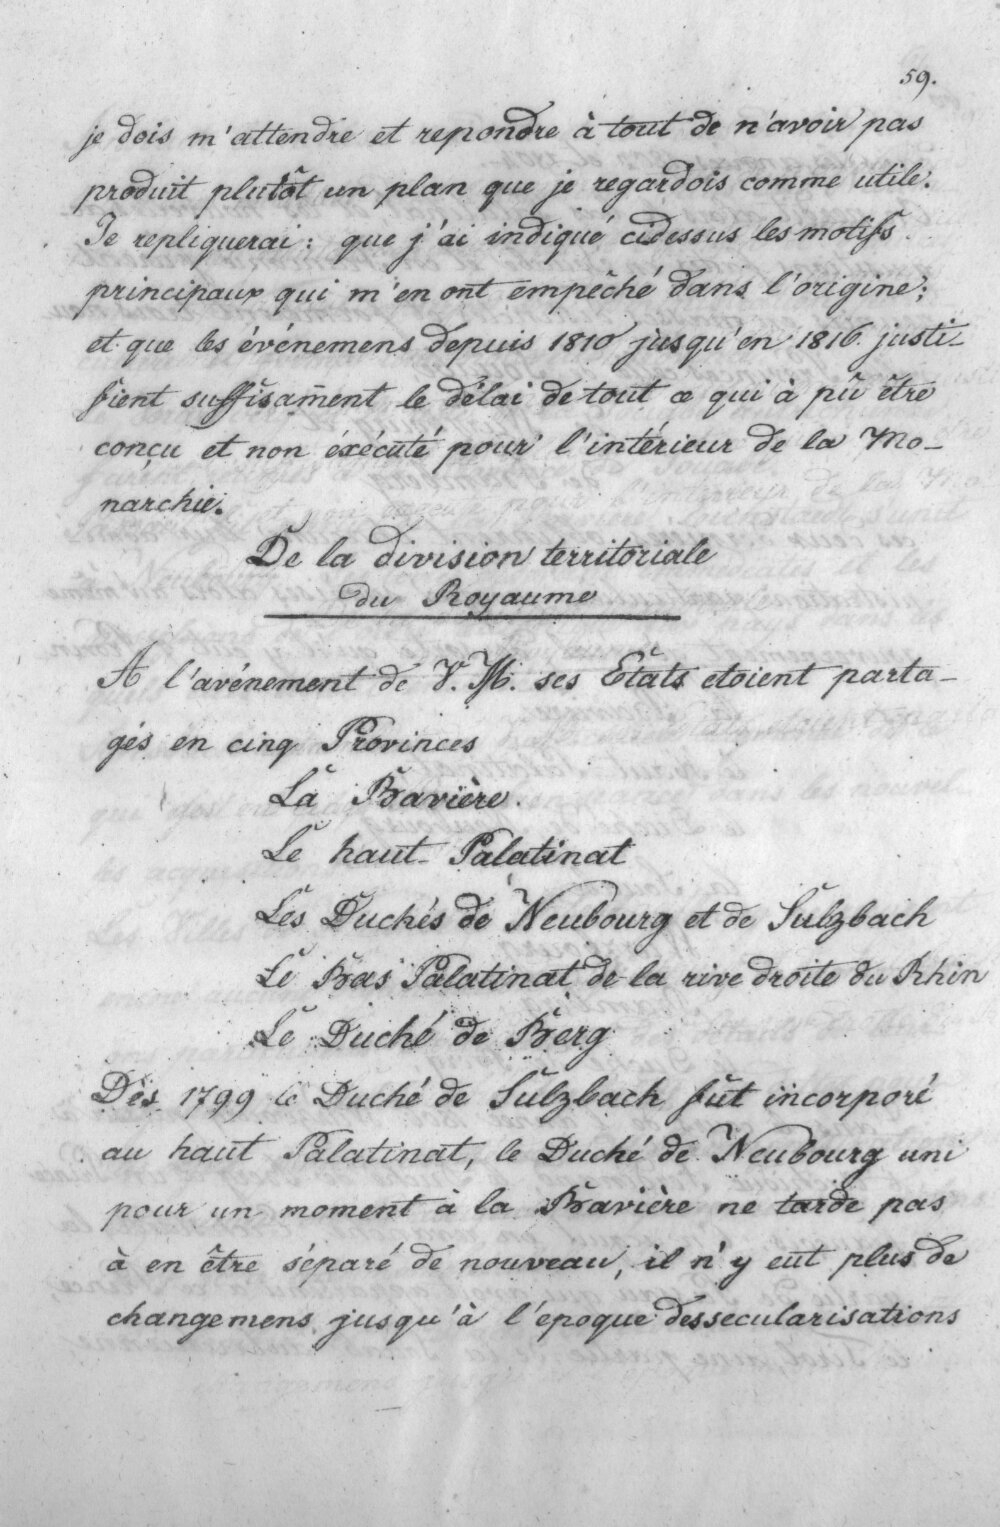 59.
je dois m'attendre et repondre à tout de n'avoir pas
produit plutôt un plan que je regardois comme utile.
Je repliquerai: que j'ai indiqué cidessus les motifs
principaux qui m'en ont empêché dans l'origine;
et que les événemens depuis 1810 jusqu'en 1816 justi-
fient suffisam̄ent le délai de tout ce qui à pû être
conçu et non éxécuté pour l'intérieur de la Mo-
narchie.
De la division territoriale
du Royaume
A l'avénement de V. M. ses Etats etoient parta-
gés en cinq Provinces
La Bavière.
Le haut-Palatinat
Les Duchés de Neubourg et de Sulzbach
Le Bas Palatinat de la rive droite du Rhin
Le Duché de Berg
Dès 1799 le Duché de Sulzbach fut incorporé
au haut Palatinat, le Duché de Neubourg uni
pour un moment à la Bavière ne tarde pas
à en être séparé de nouveau, il n'y eut plus de
changemens jusqu'à l'epoque des secularisations